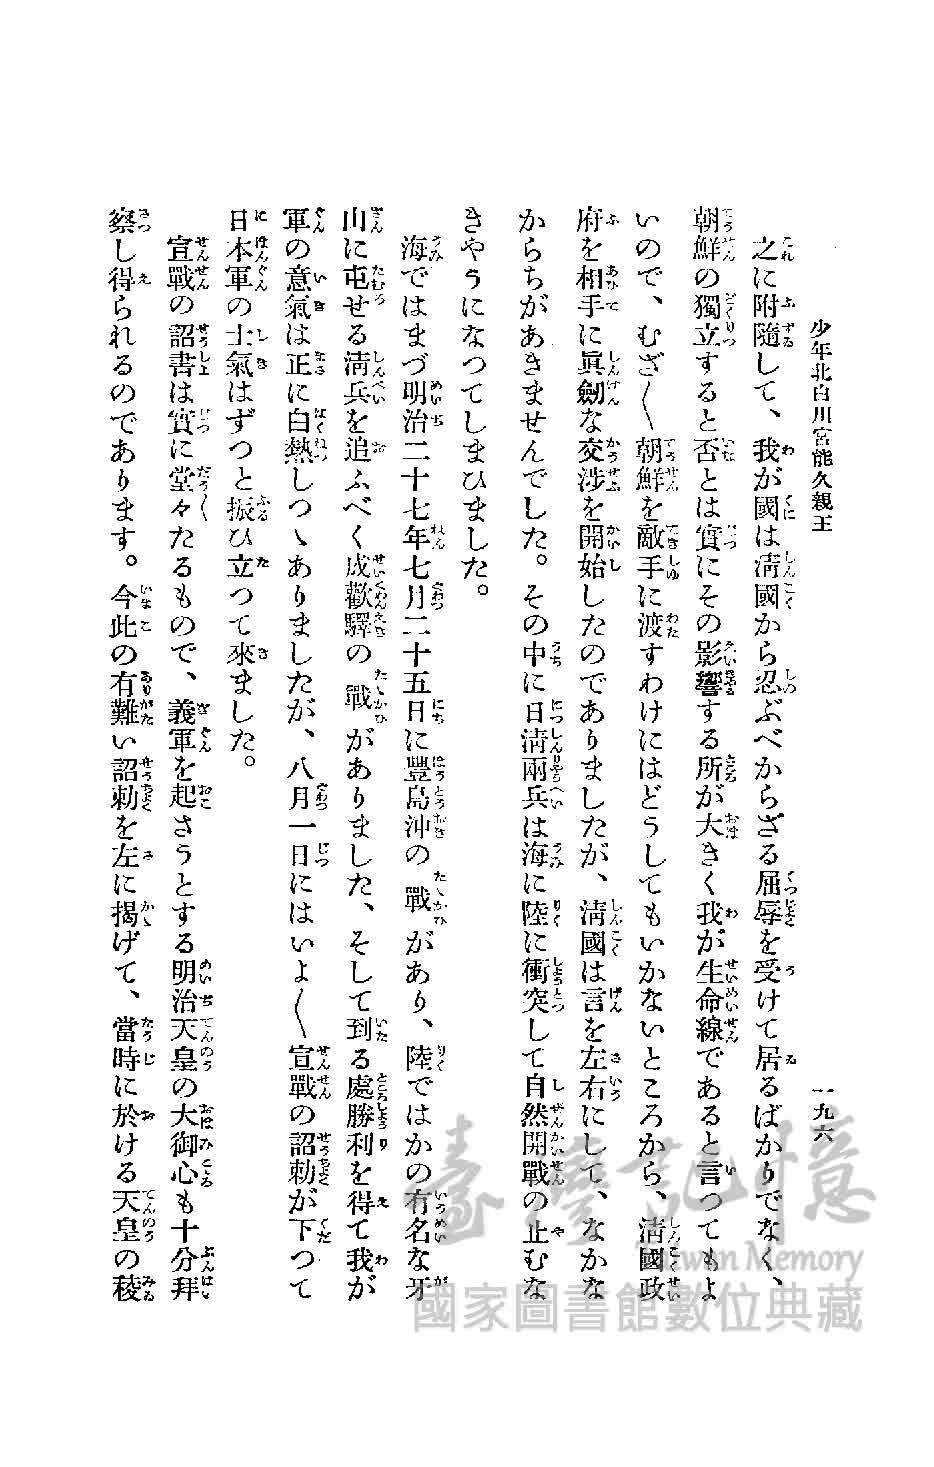 少年北白川宮能久親王
一九六
之に附隨して、我が國は淸國から忍ぶべからざる屈辱を受けて居るばかりでなく、
朝鮮の獨立すると否とは實にその影響する所が大きく我が生命線であると言つてもよ
いので、むざ〱朝鮮を敵手に渡すわけにはどうしてもいかないところから、淸國政
府を相手に眞劍な交涉を開始したのでありましたが、淸國は言を左右にして、なかな
からちがあきませんでした。その中に日淸兩兵は海に陸に衝突して自然開戰の止むな
きやうになつてしまひました。
海ではまづ明治二十七年七月二十五日に豐島沖の戰があり、陸ではかの有名な牙
山に屯せる淸兵を追ふべく成歡驛の戰がありました、そして到る處勝利を得て我が
軍の意氣は正に白熱しつゝありましたが、八月一日にはいよ〱宣戰の詔勅が下つて
日本軍の士氣はずつと振ひ立つて來ました。
宣戰の詔書は實に堂々たるもので、義軍を起さうとする明治天皇の大御心も十分拜
察し得られるのであります。今此の有難い詔勅を左に揭げて、當時に於ける天皇の稜
臺灣記憶
Taiwan Memory
國家圖書館數位典藏